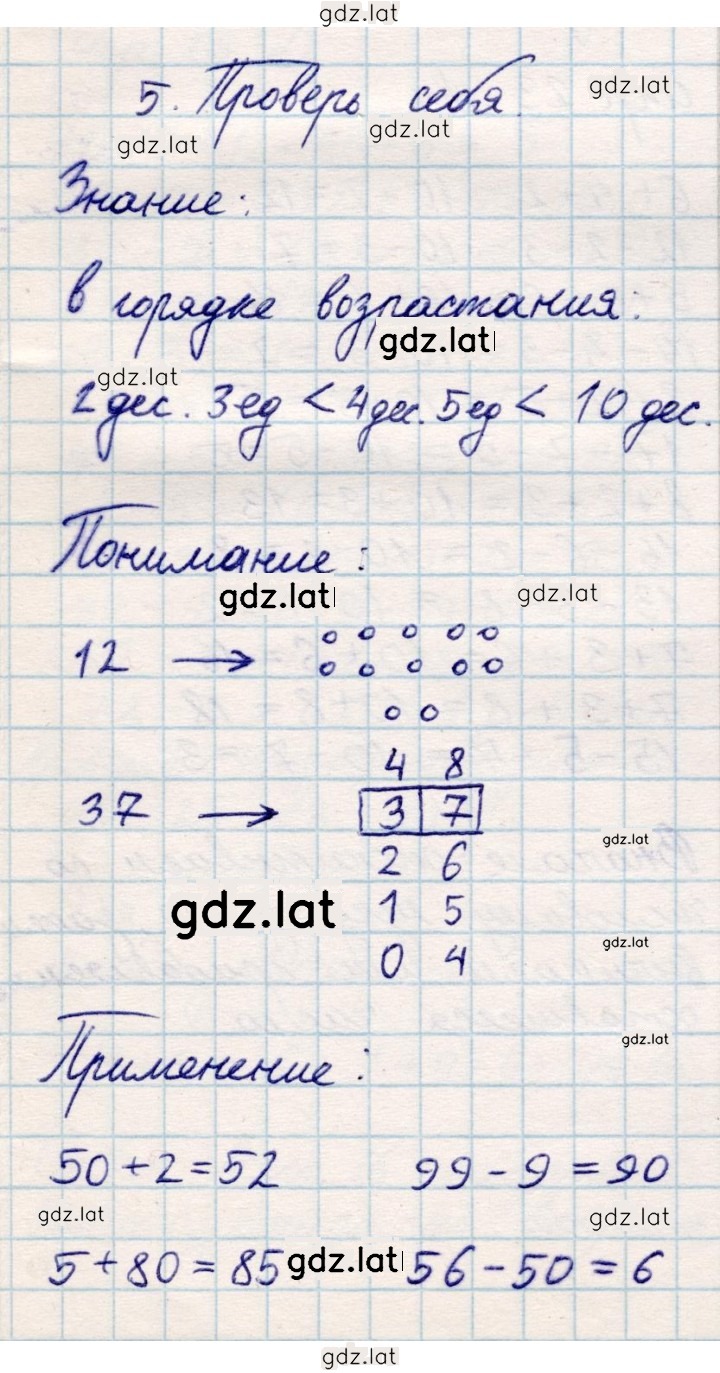 gdz.lat
5. Проверь себя.
gdz.lat
gdz.lat
gdz.lat
Знание:
в порядке возрастания:
gdz.lat
gdz.lat
2 дес. 3 ед < 4 дес. 5 ед < 10 дес.
Понимание:
gdz.lat
gdz.lat
12 →
4 8
37 → 3 7
gdz.lat
2 6
gdz.lat
1 5
gdz.lat
0 4
gdz.lat
Применение:
50 + 2 = 52 99 - 9 = 90
gdz.lat
gdz.lat
5 + 80 = 85 gdz.lat 56 - 50 = 6
gdz.lat